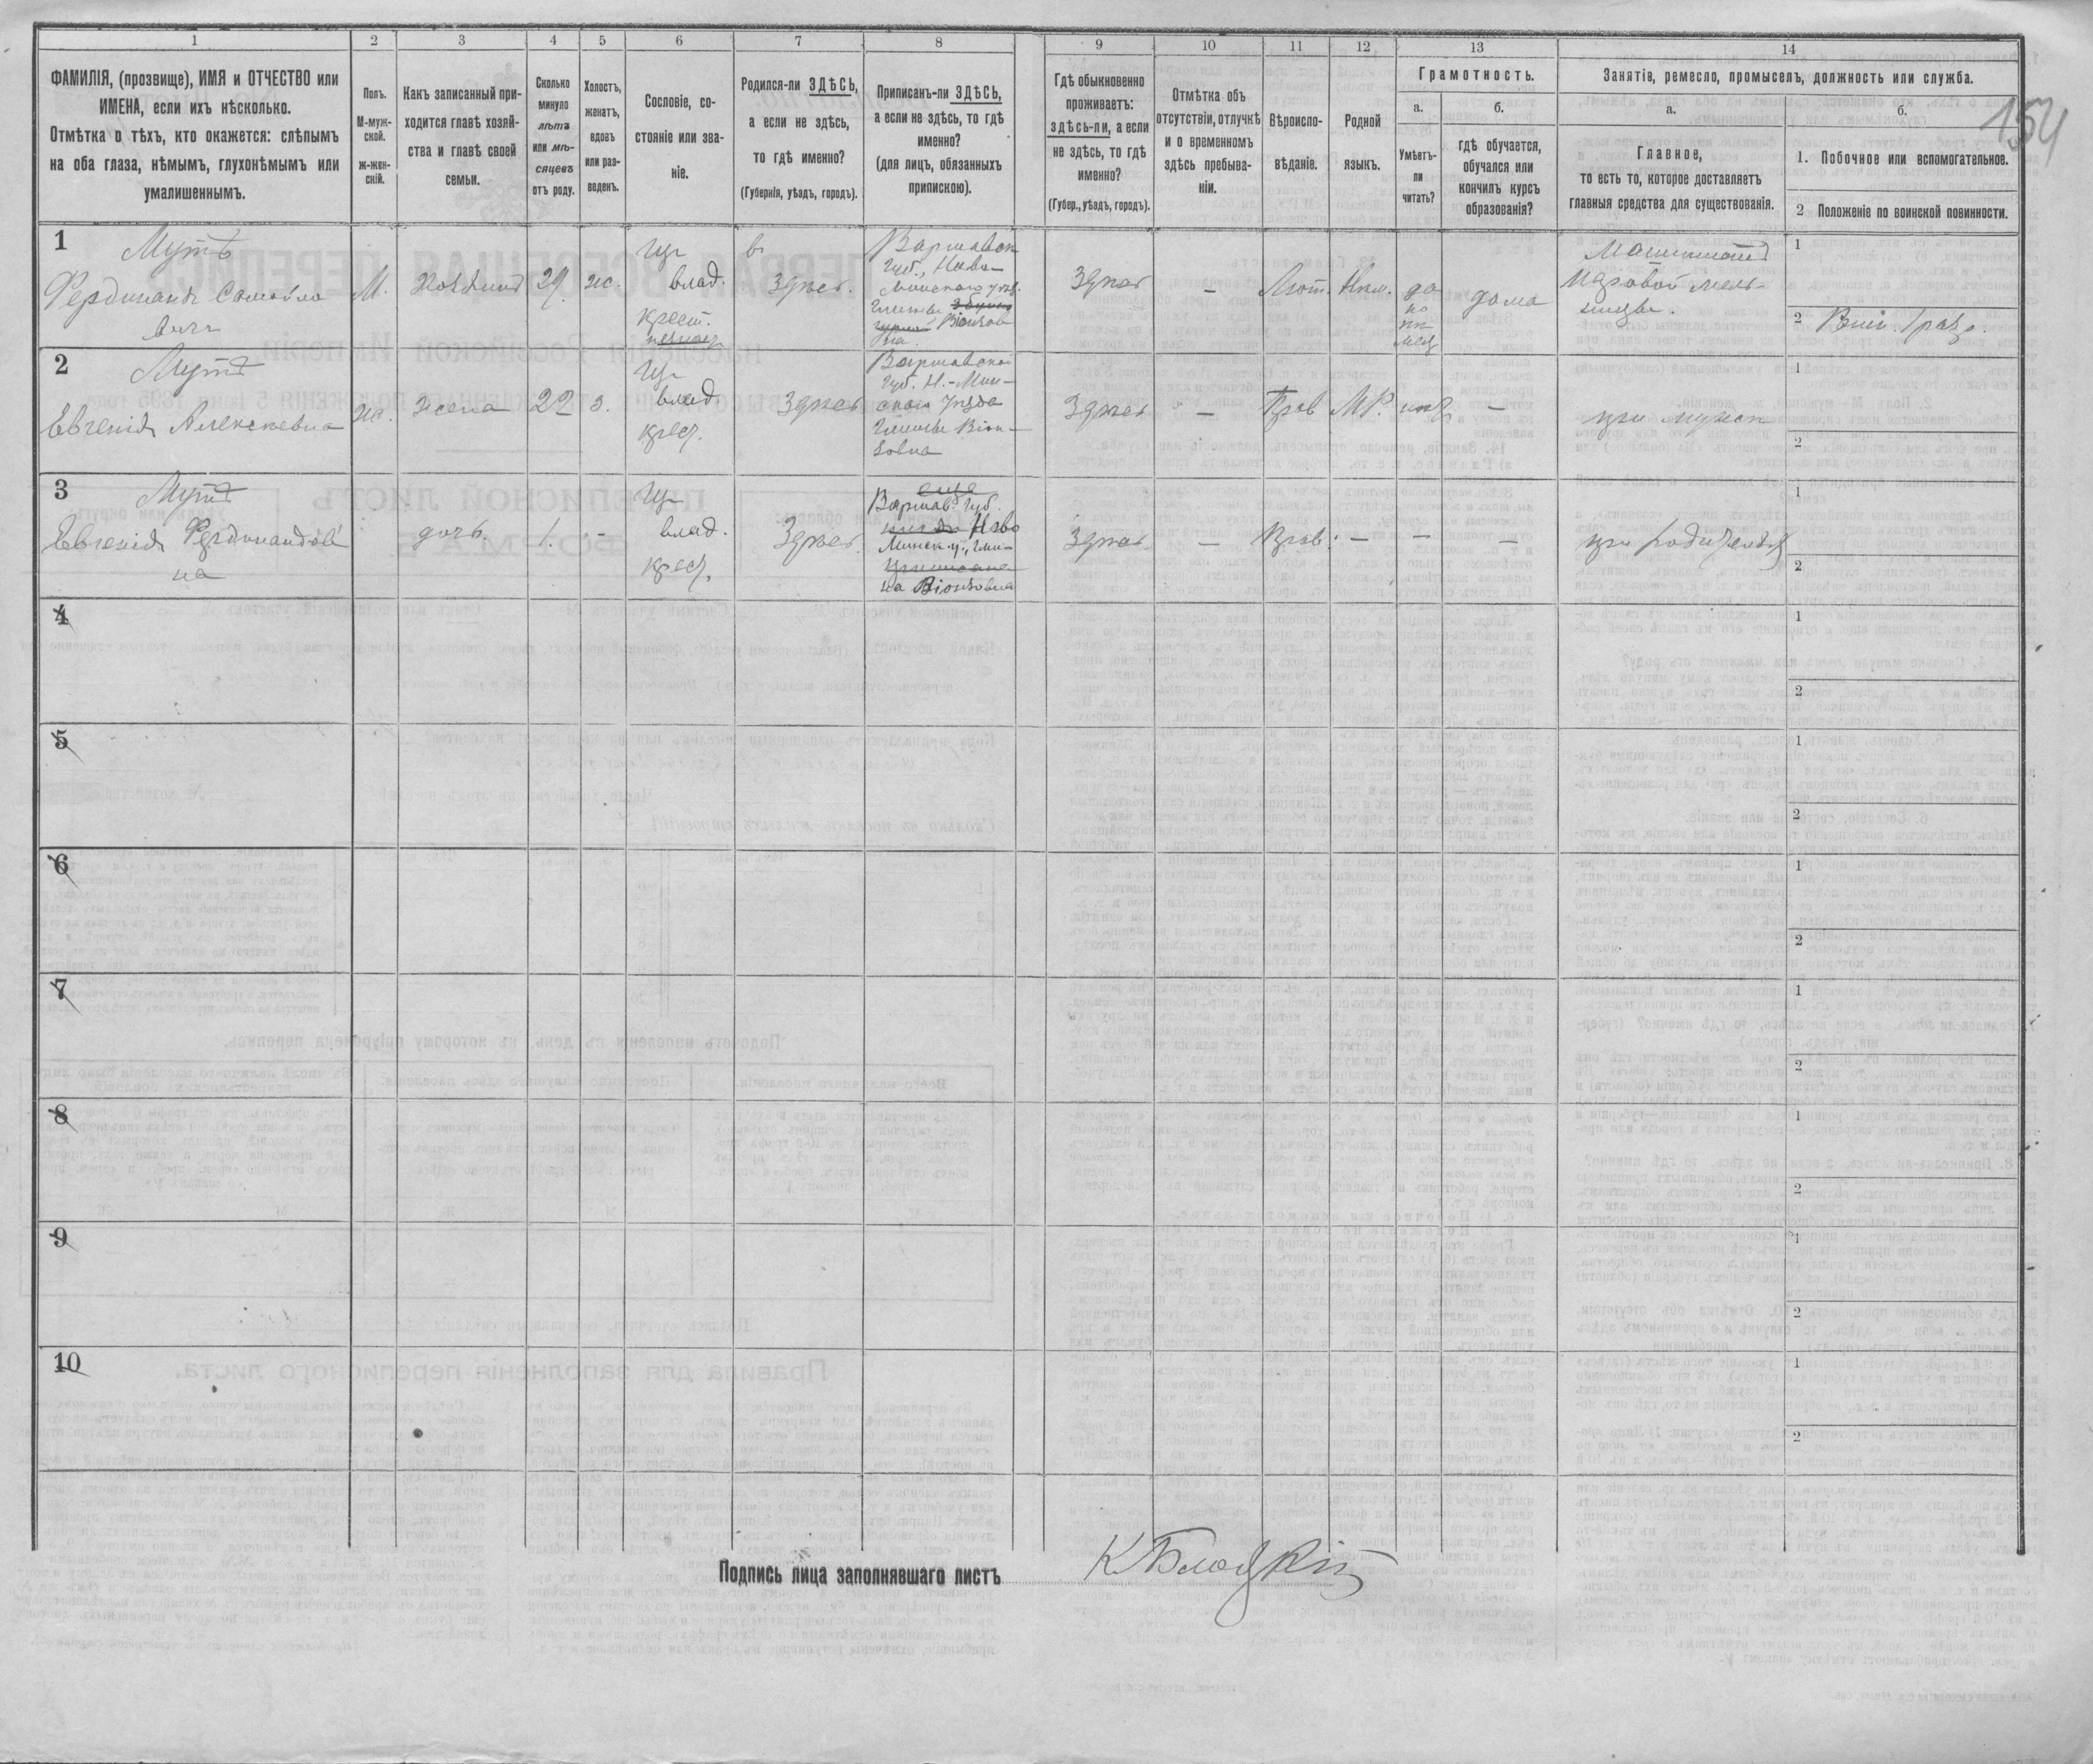 154
1
2
3
4
5
6
7
8
9
10
11
12
13
14
ФАМИЛІЯ, (прозвище), ИМЯ и ОТЧЕСТВО или
ИМЕНА, если ихъ нѣсколько.
Отмѣтка о тѣхъ, кто окажется: слѣпымъ
на оба глаза, нѣмымъ, глухонѣмымъ или
умалишеннымъ.
Полъ.
М-муж-
ской.
ж-жен-
скій.
Какъ записанный при-
ходится главѣ хозяй-
ства и главѣ своей
семьи.
Сколько
минуло
лѣтъ
или мѣ-
сяцевъ
отъ роду.
Холостъ,
женатъ,
вдовъ
или раз-
веденъ.
Сословіе, со-
стояніе или зва-
ніе.
Родился-ли ЗДѢСЬ,
а если не здѣсь,
то гдѣ именно?
(Губернія, уѣздъ, городъ).
Приписанъ-ли ЗДѢСЬ,
а если не здѣсь, то гдѣ
именно?
(для лицъ, обязанныхъ
припискою).
Гдѣ обыкновенно
проживаетъ:
здѣсь-ли, а если
не здѣсь, то гдѣ
именно?
(Губер., уѣздъ, городъ).
Отмѣтка объ
отсутствіи, отлучкѣ
и о временномъ
здѣсь пребыва-
ніи.
Вѣроиспо-
вѣданіе.
Родной
языкъ.
Грамотность.
а.
Умѣетъ-
ли
читать?
б.
гдѣ обучается,
обучался или
кончилъ курсъ
образованія?
Занятіе, ремесло, промыселъ, должность или служба.
а.
Главное,
то есть то, которое доставляетъ
главныя средства для существованія.
б.
1. Побочное или вспомогательное.
2 Положеніе по воинской повинности.
1
Мутъ
Фердинандъ Самойло
вичъ
М.
Хозяинъ
29
ж.
влад.
крест.
Здѣсь.
Варшавск
Губ., Ново-
Минскаго уѣзд.
Здѣсь
-
Лют.
Нѣм.
да
по
нѣ
мец
дома
Машинистъ
паровой мель-
ницы.
1
2
2
Мутъ
Евгенія Алексѣевна
ж.
жена
22
з.
влад.
крест.
Здѣсь
Варшавской
Губ. Н.-Мин-
скаго уѣзда
Здѣсь
-
Прав
М.Р.
нѣтъ
-
при мужѣ
1
2
3
Мутъ
Евгенія Фердинандов
на
дочь.
1.
-
влад.
крест.
Здѣсь.
Варшав. Губ.
Ново
Минск. у.,
Здѣсь
-
Прав.
-
-
-
при родителяхъ
1
2
4
1
2
5
1
2
6
1
2
7
1
2
8
1
2
9
1
2
10
1
2
Подпись лица заполнявшаго листъ